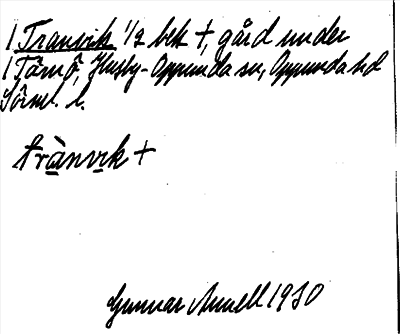 / Tranvik 1/2 bek †, gård under
/ Tärnö, Husby-Oppunda sn, Oppunda hd
Söml. l.
trànvik +
Gunnar Annell 1930